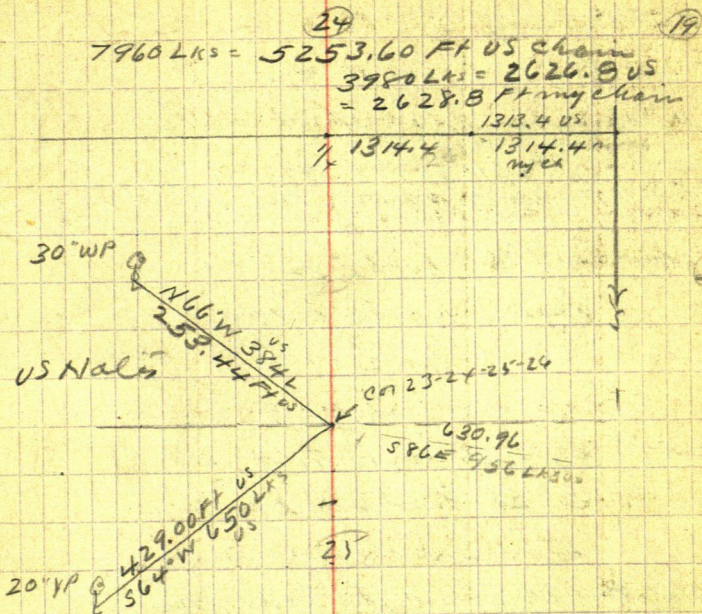 24
19
7960 Lks = 5253.60 Ft US chain
3980 Lks = 2626.8 US
= 2628.8 Ft my chain
1313.4 US
1/4 1314.4
1314.4
my ch
30" WP
N66°W 384 L
US
253.44 Ft US
US Notes
Cor 23-24-25-26
630.96
S86E 956 Lks US
429.00 Ft US
S64°W 650 Lks
US
25
20" YP